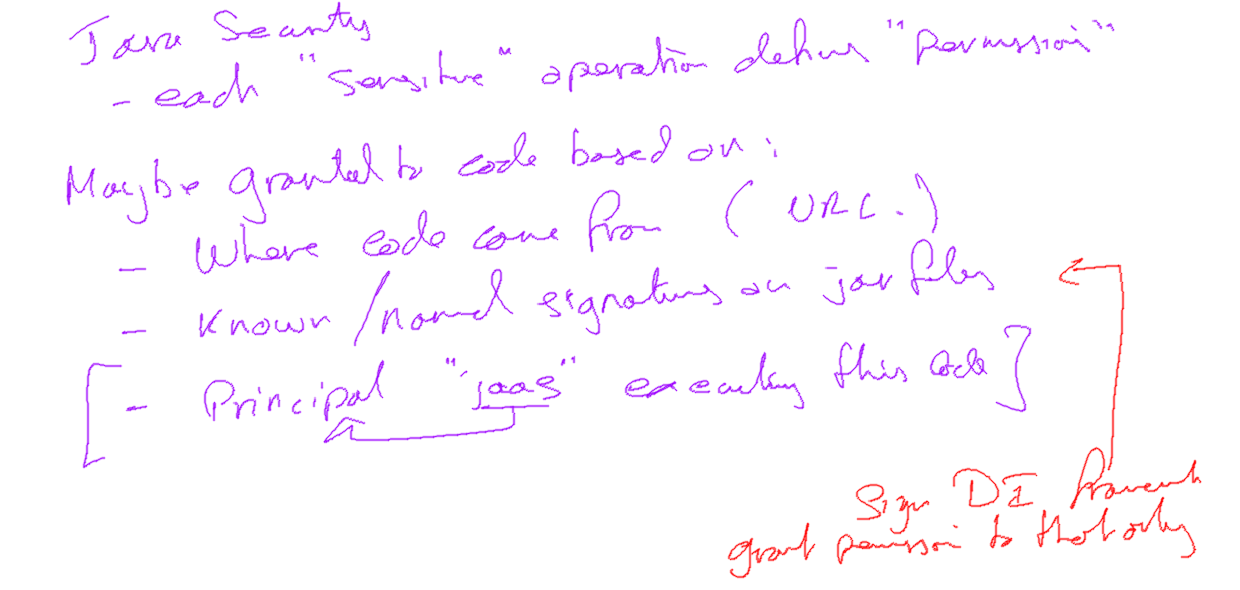 Java Security
- each "sensitive" operation defines "permission"
Maybe granted to code based on:
- Where code come from ( URL. )
- Known / named signatures on jar files
[ - Principal "jaas" executing this code ]
Sign DI Framework
grant permission to that only